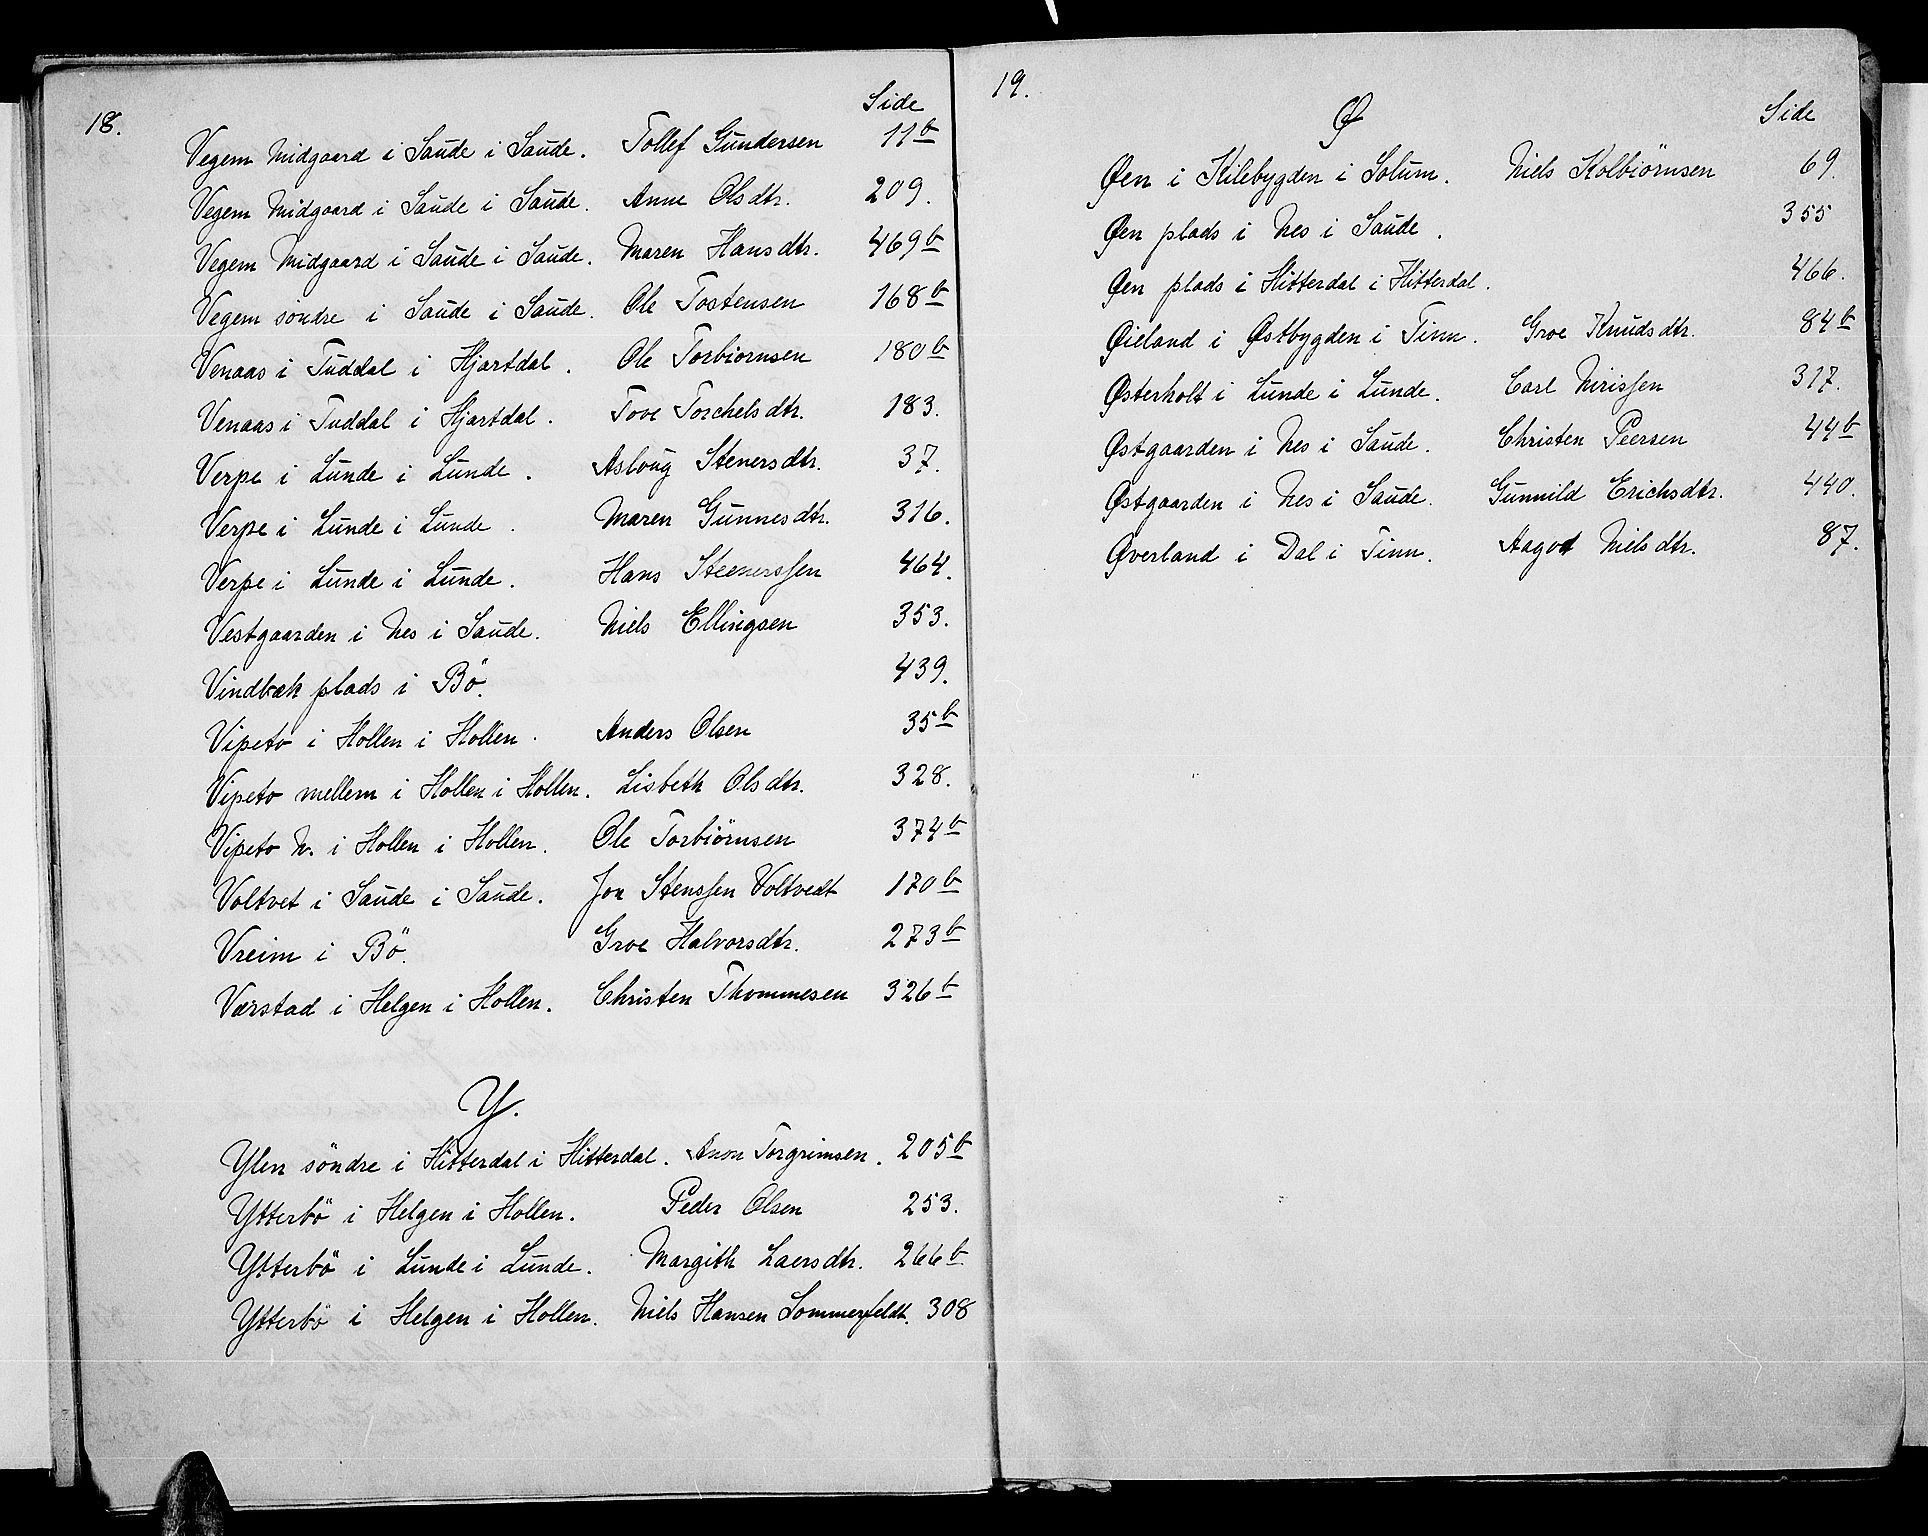 18.
Side
Vegem Midgaard i Saude i Saude. Tollef Gundersen 11b
Vegem Midgaard i Saude i Saude. Anne Olsdtr. 209.
Vegem Midgaard i Saude i Saude. Maren Hansdtr. 469b
Vegem söndre i Saude i Saude. Ole Tostensen 168b
Venaas i Tuddal i Hjartdal. Ole Torbiornsen 180b
Venaas i Tuddal i Hjartdal. Tove Torchelsdtr. 183.
Verpe i Lunde i Lunde. Asloug Stenersdtr. 37.
Verpe i Lunde i Lunde. Maren Gunnesdtr. 316.
Verpe i Lunde i Lunde. Hans Steenerssen 464.
Vestgaarden i Nes i Saude. Niels Ellingsen 353.
Vindbæk plads i Bö. 439.
Vipeto i Hollen i Hollen. Anders Olsen 35b
Vipeto mellem i Hollen i Hollen. Lisbeth Olsdtr. 328.
Vipeto N. i Hollen i Hollen. Ole Torbiörnsen 374b
Voltvet i Saude i Saude. Jon Stenssen Voltvedt 170b
Vreim i Bö. Groe Halvorsdtr. 273b
Værstad i Helgen i Hollen. Christen Thommesen 326b
Y.
Ylen söndre i Hitterdal i Hitterdal. Anon Torgrimsen. 205b
Ytterbö i Helgen i Hollen. Peder Olsen 253.
Ytterbö i Lunde i Lunde. Margith Laersdtr. 266b
Ytterbö i Helgen i Hollen. Niels Hansen Sommerfeldt. 308
19.
Ø
Side
Øen i Kilebygden i Solum. Niels Kolbiörnsen 69.
Øen plads i Nes i Saude. 355
Øen plads i Hitterdal i Hitterdal. 466.
Øieland i Østbygden i Tinn. Groe Knudsdtr. 84b
Østerholt i Lunde i Lunde. Carl Nirissen 317.
Østgaarden i Nes i Saude. Christen Peersen 44b
Østgaarden i Nes i Saude. Gunnild Erichsdtr. 440.
Øverland i Dal i Tinn. Aagot Nielsdtr. 87.